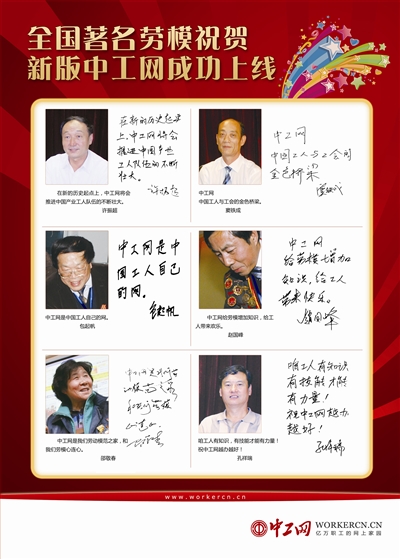 全国著名劳模祝贺
新版中工网成功上线
在新的历史起点
上，中工网将会
推进中国产业
工人队伍的不断
壮大。
许振超
在新的历史起点上，中工网将会
推进中国产业工人队伍的不断壮大。
许振超
中工网
中国工人与工会的
金色桥梁
窦铁成
中工网
中国工人与工会的金色桥梁。
窦铁成
中工网是中
国工人自己
的网。
包起帆
中工网是中国工人自己的网。
包起帆
中工网
给劳模增加
知识，给工人
带来快乐。
赵国峰
中工网给劳模增加知识，给工
人带来欢乐。
赵国峰
中工网是我们劳动
模范之家
和我们劳模
心连心
中工网是我们劳动模范之家，和
我们劳模心连心。
邵敬春
咱工人有知识
有技能才能
有力量！
祝中工网越办
越好！
孔祥瑞
咱工人有知识，有技能才能有力量！
祝中工网越办越好！
孔祥瑞
www.workercn.cn
中工网 WORKERCN.CN
亿万职工的网上家园